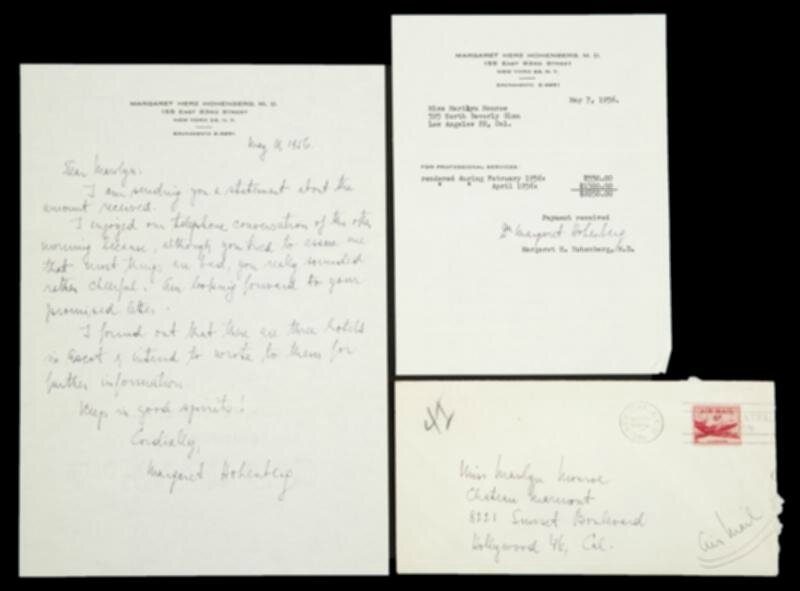 MARGARET HERZ HOHENBERG, M. D.
155 EAST 93RD STREET
NEW YORK 28, N. Y.
SACRAMENTO 2-
May 1956
Dear Marilyn.
I am sending you a statement about the
amount received.
I enjoyed our telephone conversation of the other
morning because, although you tried to assure me
that most things are bad, you really sounded
rather cheerful. Am looking forward to your
promised letter.
I found out that there are three hotels
in Ascot & intend to wrote to them for
further information
Keep in good spirits!
Cordially,
Margaret Hohenberg
MARGARET HERZ HOHENBERG, M. D.
155 EAST 93RD STREET
NEW YORK 28, N. Y.
SACRAMENTO 2-
May 7, 1956.
Miss Marilyn Monroe
595 North Beverly Glen
Los Angeles Cal.
FOR PROFESSIONAL SERVICES:
rendered during February 1956:
" " April 1956:
Payment received
Margaret Hohenberg
Margaret H. Hohenberg, M.D.
AIR MAIL
6¢
Miss Marilyn Monroe
Chateau Marmont
8221 Sunset Boulevard
Hollywood 46, Cal.
air mail